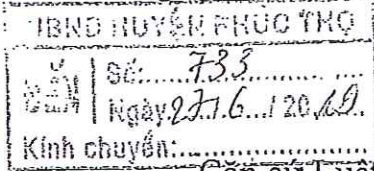 UBND HUYỆN PHÚC THỌ
ĐẾN
Số:.....733.............
Ngày:27/.6.../20.19..
Kính chuyển:........................
Căn cứ Luật